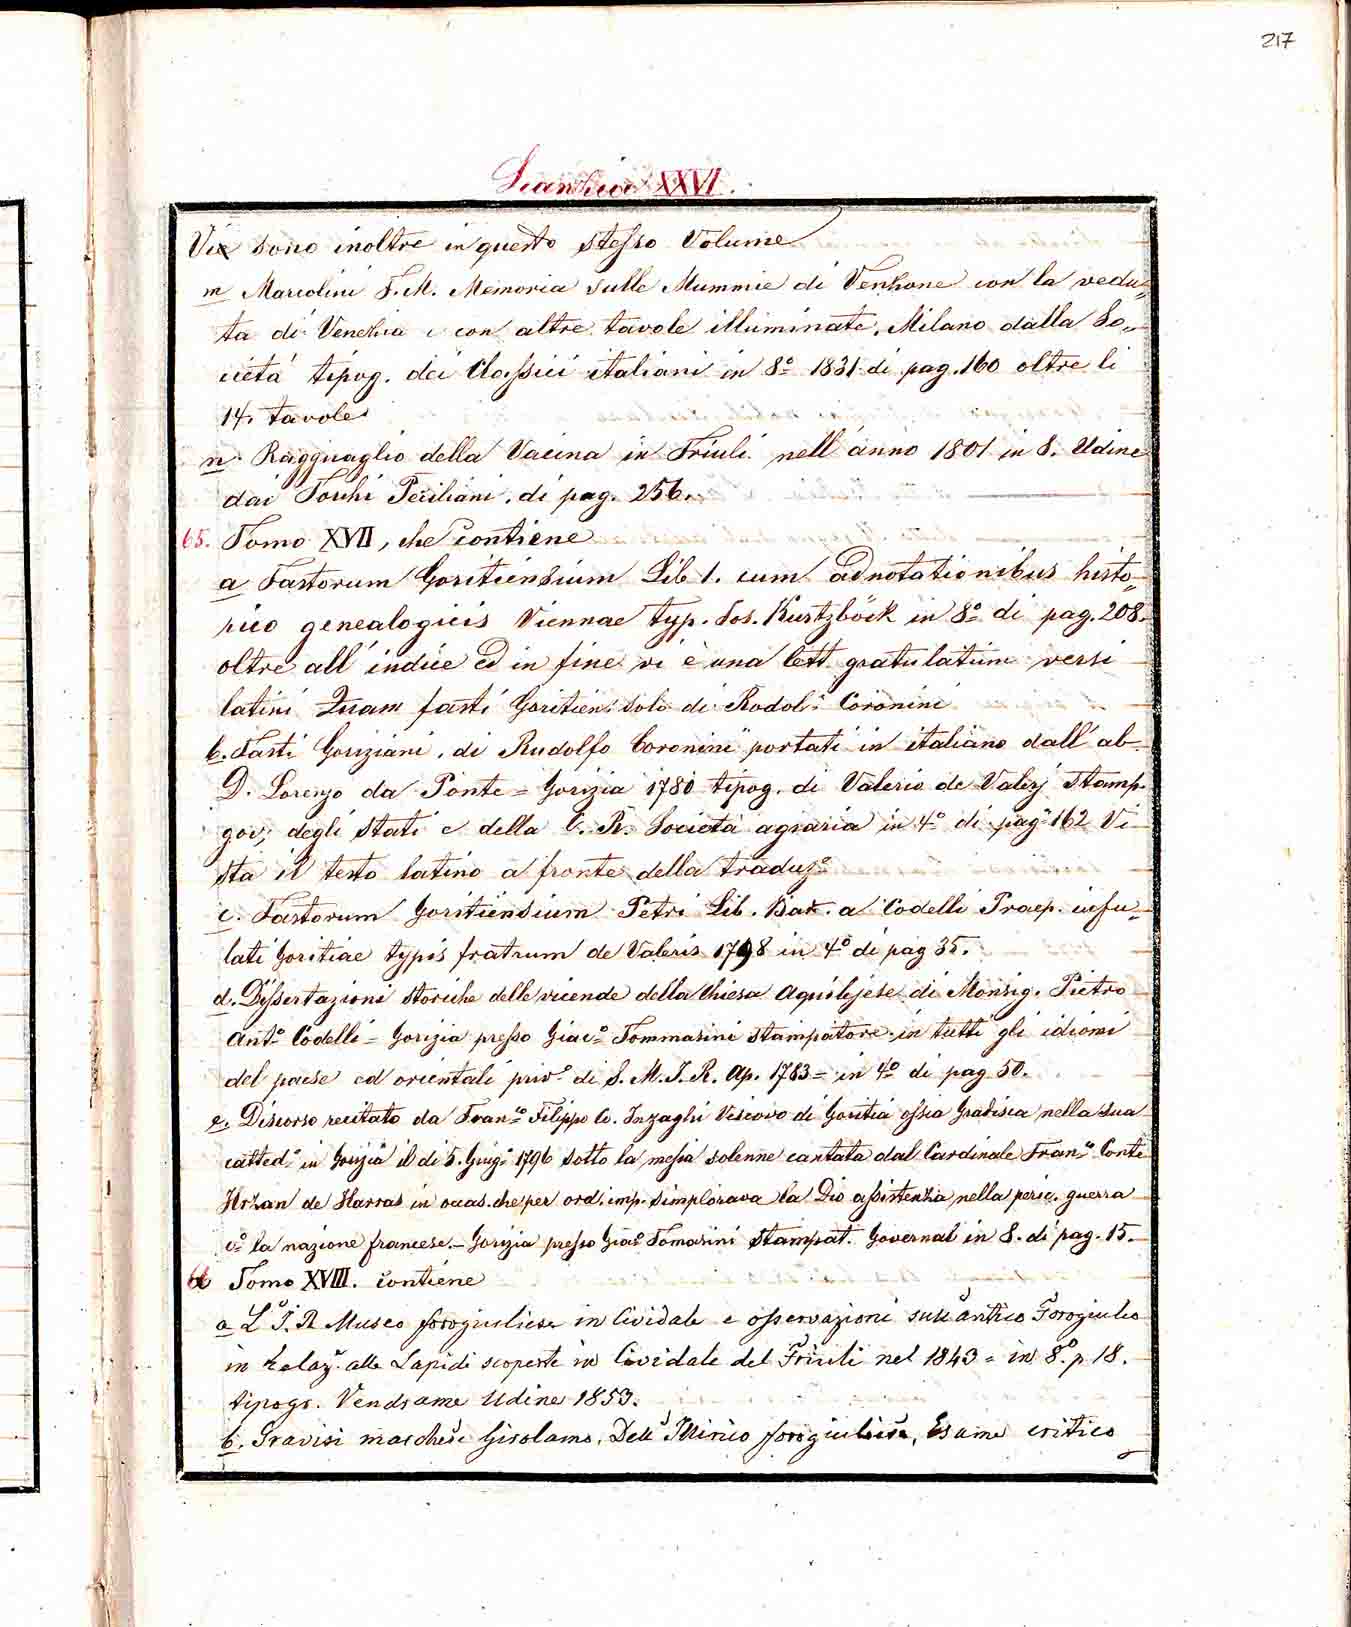 217
Scansia XXVI.
Vi sono inoltre in questo stesso Volume
m Marcolini F. M. Memoria sulle Mummie di Venzone con la vedu„
ta di Venchia e con altre tavole illuminate. Milano dalla So„
cietà tipog. dei Classici italiani in 8.º 1831 di pag. 160 oltre li
14. tavole
n. Ragguaglio della Vacina in Friuli nell'anno 1801 in 8. Udine
dai Torchi Peciliani. di pag. 256.
65. Tomo XVII, che contiene
a Fastorum Goritiensium Lib 1. cum adnotationibus histo„
rico genealogicis Viennae typ. Jos. Kurtzböck in 8.º di pag. 208.
oltre all'indice ed in fine vi è una lett. gratulatum versi
latini Quam fasti Goritien: soli di Rodol: Coronini
b. Fasti Goriziani. di Rudolfo Coronini portati in italiano dall'ab
D. Lorenzo da Ponte = Gorizia 1780 tipog. di Valerio de Valerj stamp.
gov; degli Stati e della C. R. Società agraria in 4.º di pag 162 Vi
sta il testo latino a fronte della traduzº
c. Fastorum Goritiensium Petri Lib. Bar. a Codelli Praep. infu„
lati Goritiae typis fratrum de Valeris 1798 in 4.º di pag 35.
d. Dissertazioni storiche delle vicende della Chiesa Aquilejese di Monsig. Pietro
Ant.º Codelli = Gorizia presso Giac.º Tommasini stampatore in tutti gli idiomi
del paese ed orientali priv.º di S. M. I. R. Ap. 1783 = in 4.º di pag 50.
e. Discorso recitato da Fran.co Filippo Co. Inzaghi Vescovo di Goritia ossia Gradisca nella sua
catted.º in Gorizia il di 5. Giug.º 1796 sotto la messa solenne cantata dal Cardinale Fran.º Conte
Hrzan de Harras in occas. che per ord. imp. s'implorava la Dio assistenza nella peric. guerra
c.º la nazione francese. – Gorizia presso Giac.º Tomasini Stampat. Governal in 8. di pag. 15.
66 Tomo XVIII. contiene
a L'I. R. Museo forogiuliese in Cividale e osservazioni sull'antico Forogiulio
in relaz. alle Lapidi scoperte in Cividale del Friuli nel 1843 = in 8.º p 18.
tipogr. Vendrame Udine 1853.
b. Gravisi marchese Girolamo, Dell'Illirico forogiuliese, Esame critico